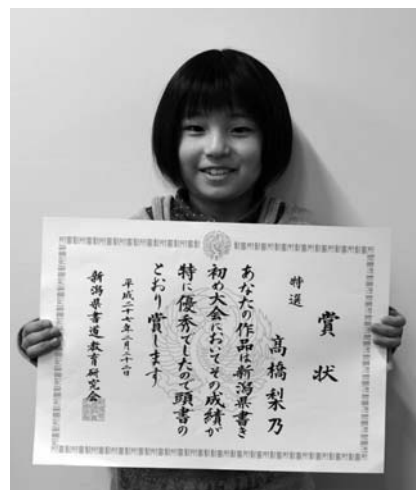 賞状
特選
高橋梨乃
あなたの作品は新潟県書き
初め大会においてその成績が
特に優秀でしたので頭書の
とおり賞します
新潟県書道教育研究会